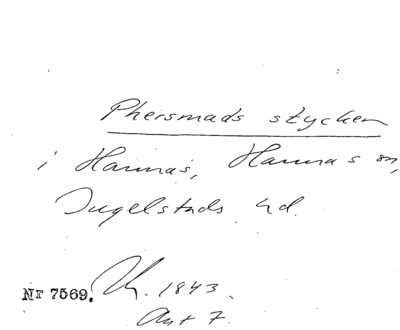 Phersmads stycken
i Hannas, Hannas sn,
Ingelstads hd.
Nr 7569. 1843.
Akt 7.